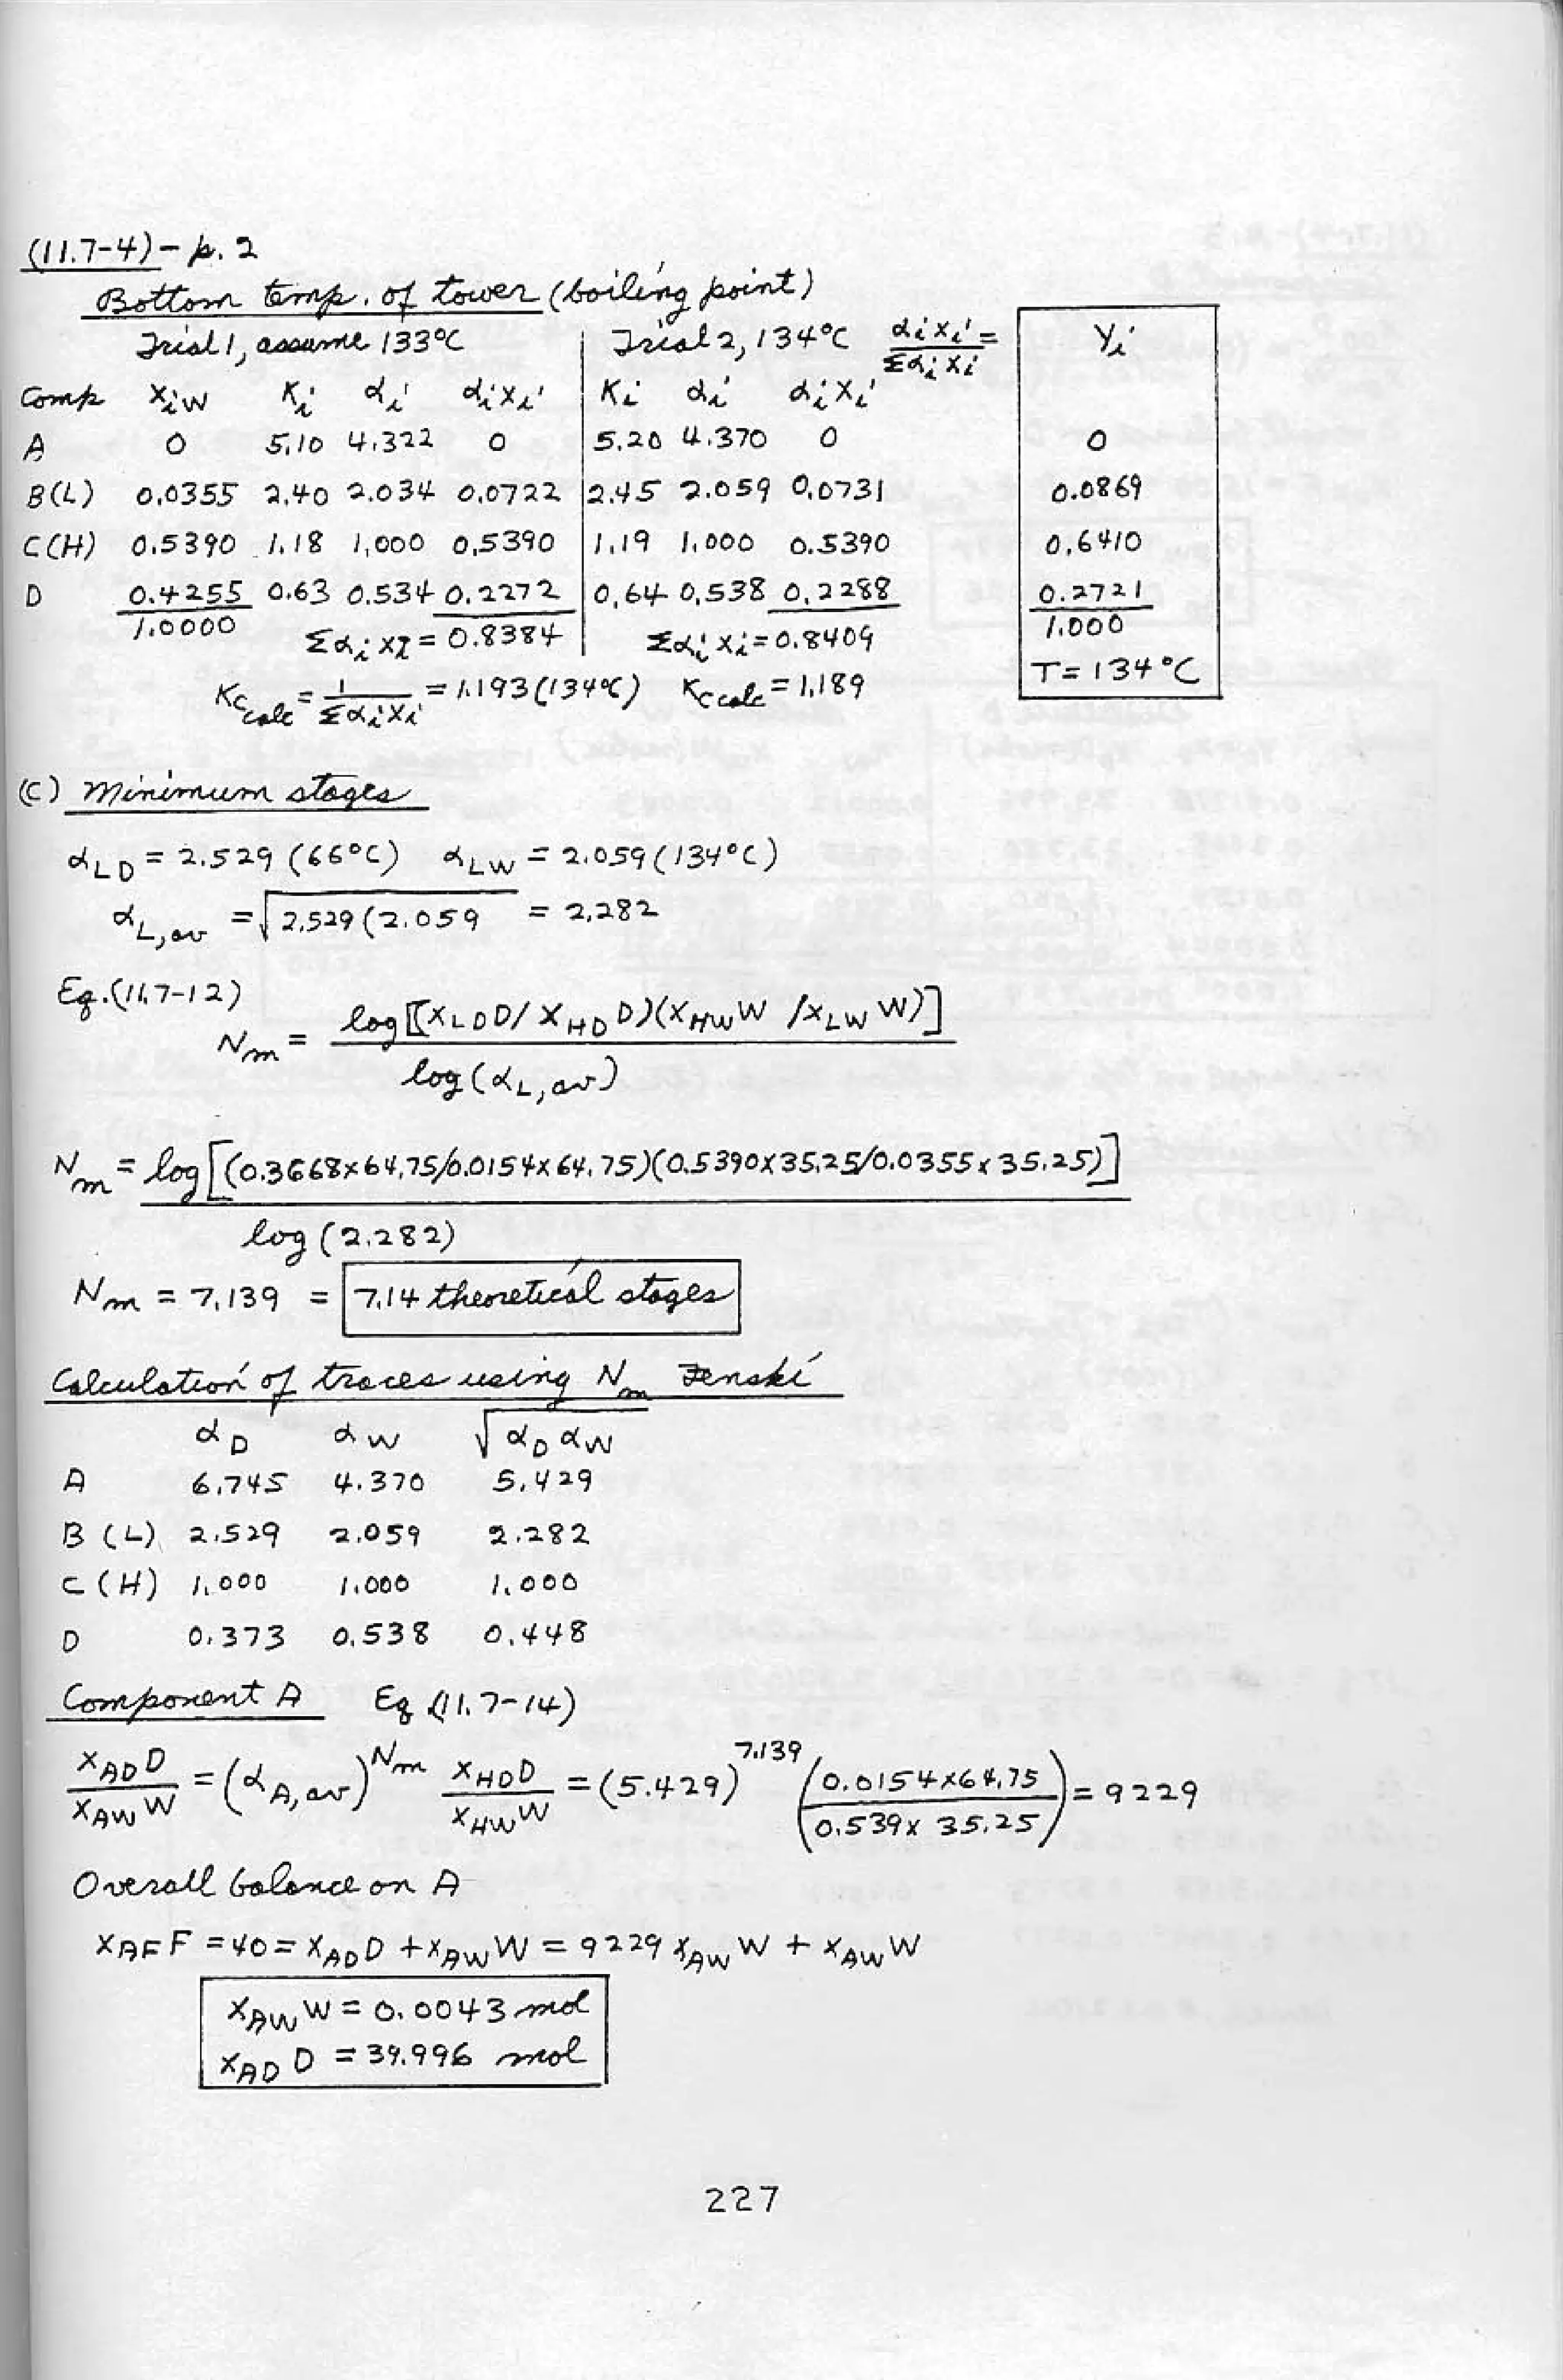 (11.7-4) - p. 2
Bottom temp. of tower (boiling point)
Trial 1, assume 133°C | Trial 2, 134°C αixi/Σαixi = yi
Comp xiW Ki αi αixi | Ki αi αixi
A 0 5.10 4.322 0 | 5.20 4.370 0 0
B(L) 0.0355 2.40 2.034 0.0722 | 2.45 2.059 0.0731 0.0869
C(H) 0.5390 1.18 1.000 0.5390 | 1.19 1.000 0.5390 0.6410
D 0.4255 0.63 0.534 0.2272 | 0.64 0.538 0.2288 0.2721
1.0000 Σαixi = 0.8384 Σαixi = 0.8409 1.000
Kc calc = 1/Σαixi = 1.193 (134°C) Kc calc = 1.189 T = 134°C
(c) Minimum stages
αLD = 2.529 (66°C) αLW = 2.059 (134°C)
αL,av = √2.529(2.059 = 2.282
Eq. (11.7-12)
Nm = log[[xLD D/xHD D)(xHW W/xLW W)] / log(αL,av)
Nm = log[(0.3668x64.75/0.0154x64.75)(0.5390x35.25/0.0355x35.25)]
log(2.282)
Nm = 7.139 = 7.14 theoretical stages
Calculation of traces using Nm Fenski
αD αW √αDαW
A 6.745 4.370 5.429
B(L) 2.529 2.059 2.282
C(H) 1.000 1.000 1.000
D 0.373 0.538 0.448
Component A Eq (11.7-14)
xAD D/xAW W = (αA,av)^Nm xHD D/xHW W = (5.429)^7.139 (0.0154x64.75/0.539x35.25) = 9229
Overall balance on A
xAF F = 40 = xAD D + xAW W = 9229 xAW W + xAW W
xAW W = 0.0043 mol
xAD D = 39.996 mol
227